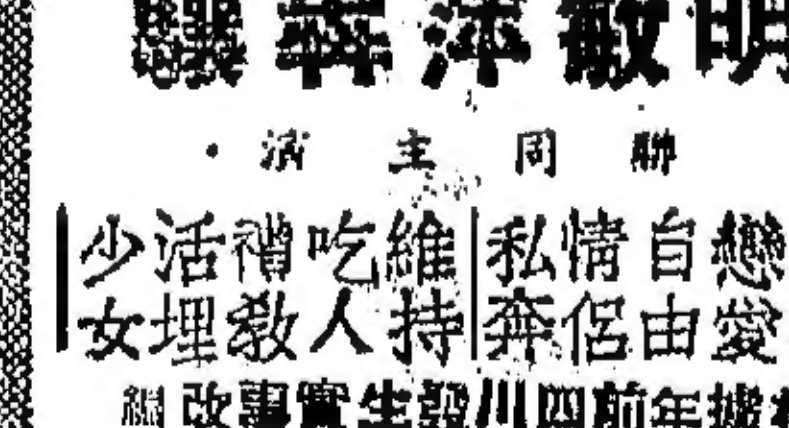 明敏
聯同主演
戀愛自由情侶私奔
維持吃人禮教活埋少女
據年前四川發生實事改編